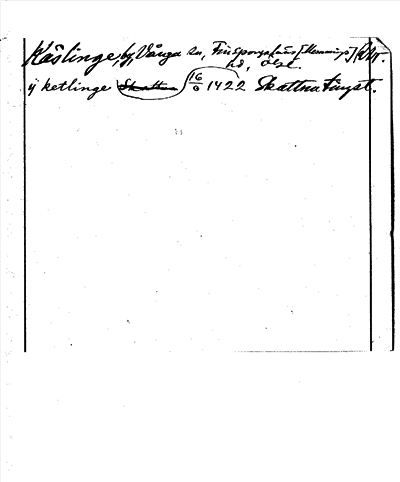 Käslinge, by, Vånga sn, Finspongaläns [Memmings] 
hd, Ögl.
ÿ ketlinge Skattna 16/6 1422 Skattna tingst.